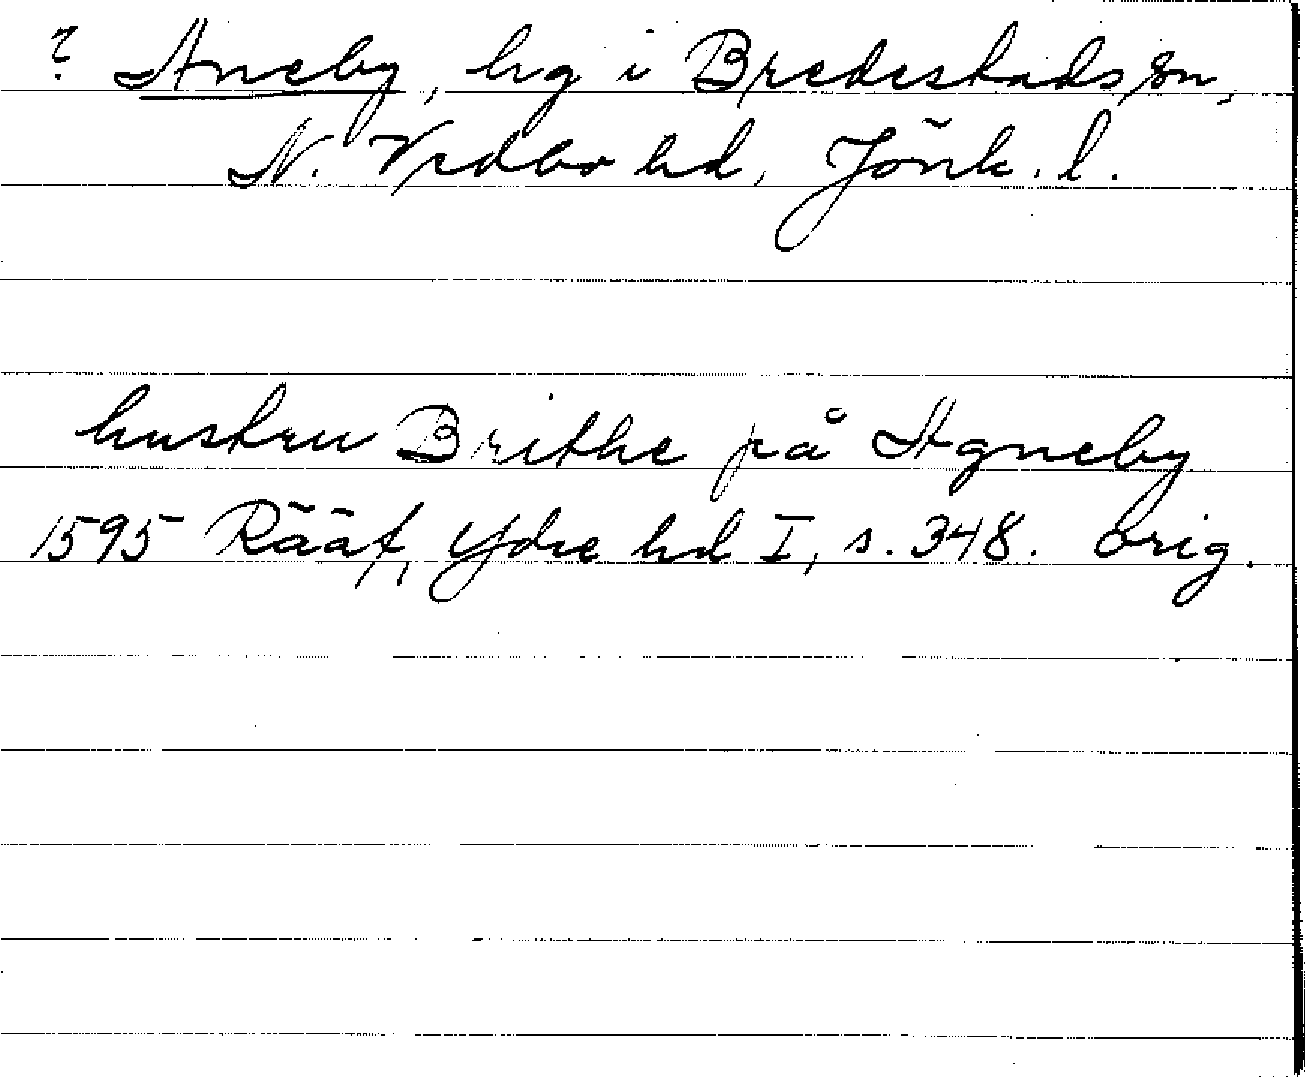 ? Aneby, hg i Bredestads sn,
N. Vedbo hd, Jönk. l.
hustru Brithe på Agneby
1595 Rääf, Ydre hd I, s. 348. orig.